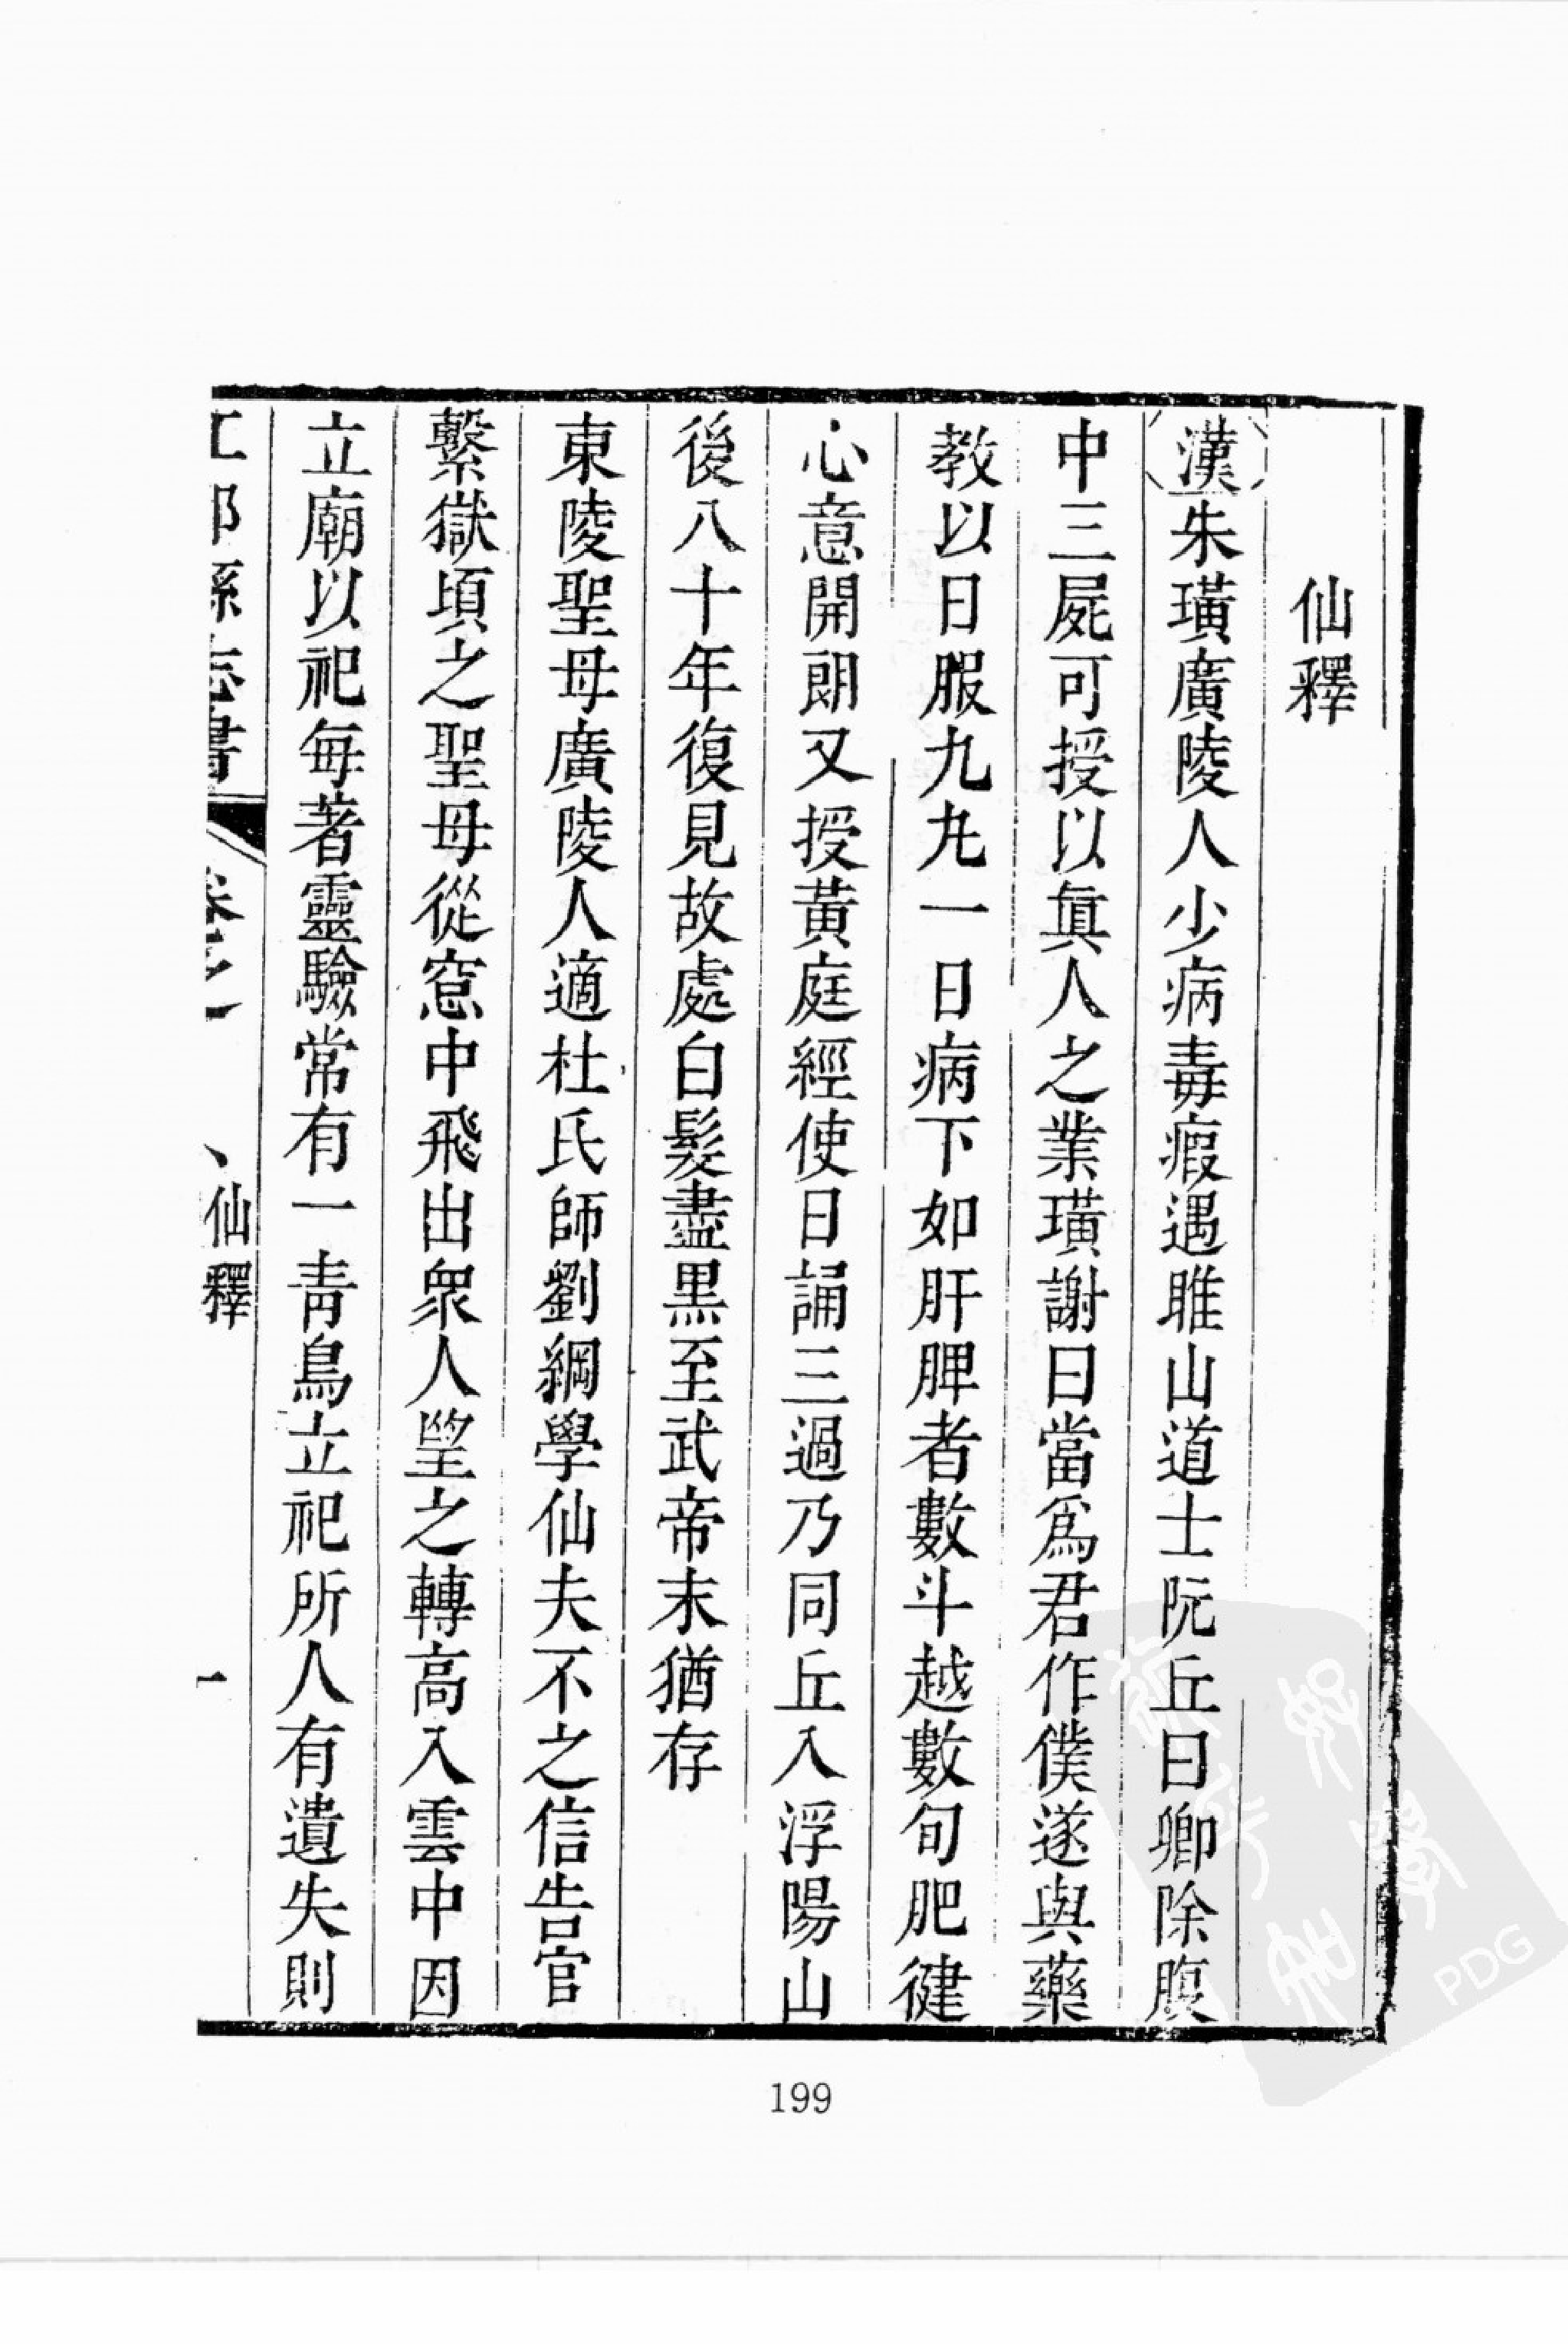 仙釋
漢朱璜廣陵人少病毒瘕遇睢山道士阮丘曰卿除腹
中三屍可授以眞人之業璜謝曰當爲君作僕遂與藥
教以日服九丸一日病下如肝脾者數斗越數旬肥健
心意開朗又授黃庭經使日誦三過乃同丘入浮陽山
後八十年復見故處白髮盡黒至武帝末猶存
東陵聖母廣陵人適杜氏師劉綱學仙夫不之信告官
繫獄頃之聖母從窓中飛出衆人望之轉高入雲中因
立廟以祀每著靈驗常有一靑鳥立祀所人有遺失則
仙釋
一
199
PDG